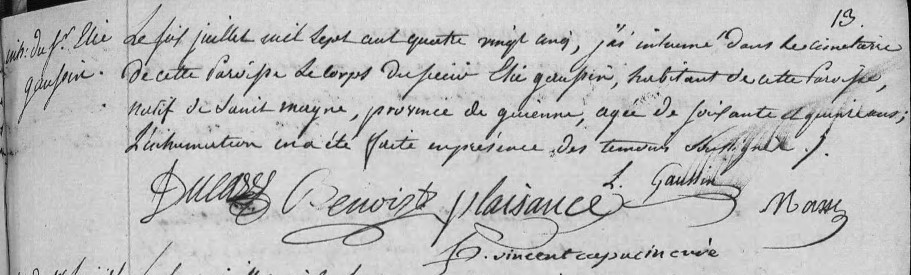 13.
inh: du Sr. Elie
gaussin.
Le six juillet mil sept cent quatre vingt cinq, j'ai inhumé dans le cimetiere
de cette Paroisse le corps du sieur Elie gaussin, habitant de cette Paroisse,
natif de Sainit mayne, province de guienne, agée de soixante et quinze ans;
L'inhumation en a été faite en présence des temoins soussignés ./.
Ducasse Benoist plaisance L. Gaussin
f. vincent capucin curé